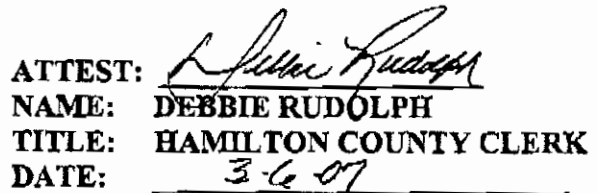 ATTEST: Debbie Rudolph
NAME: DEBBIE RUDOLPH
TITLE: HAMILTON COUNTY CLERK
DATE: 3-6-07